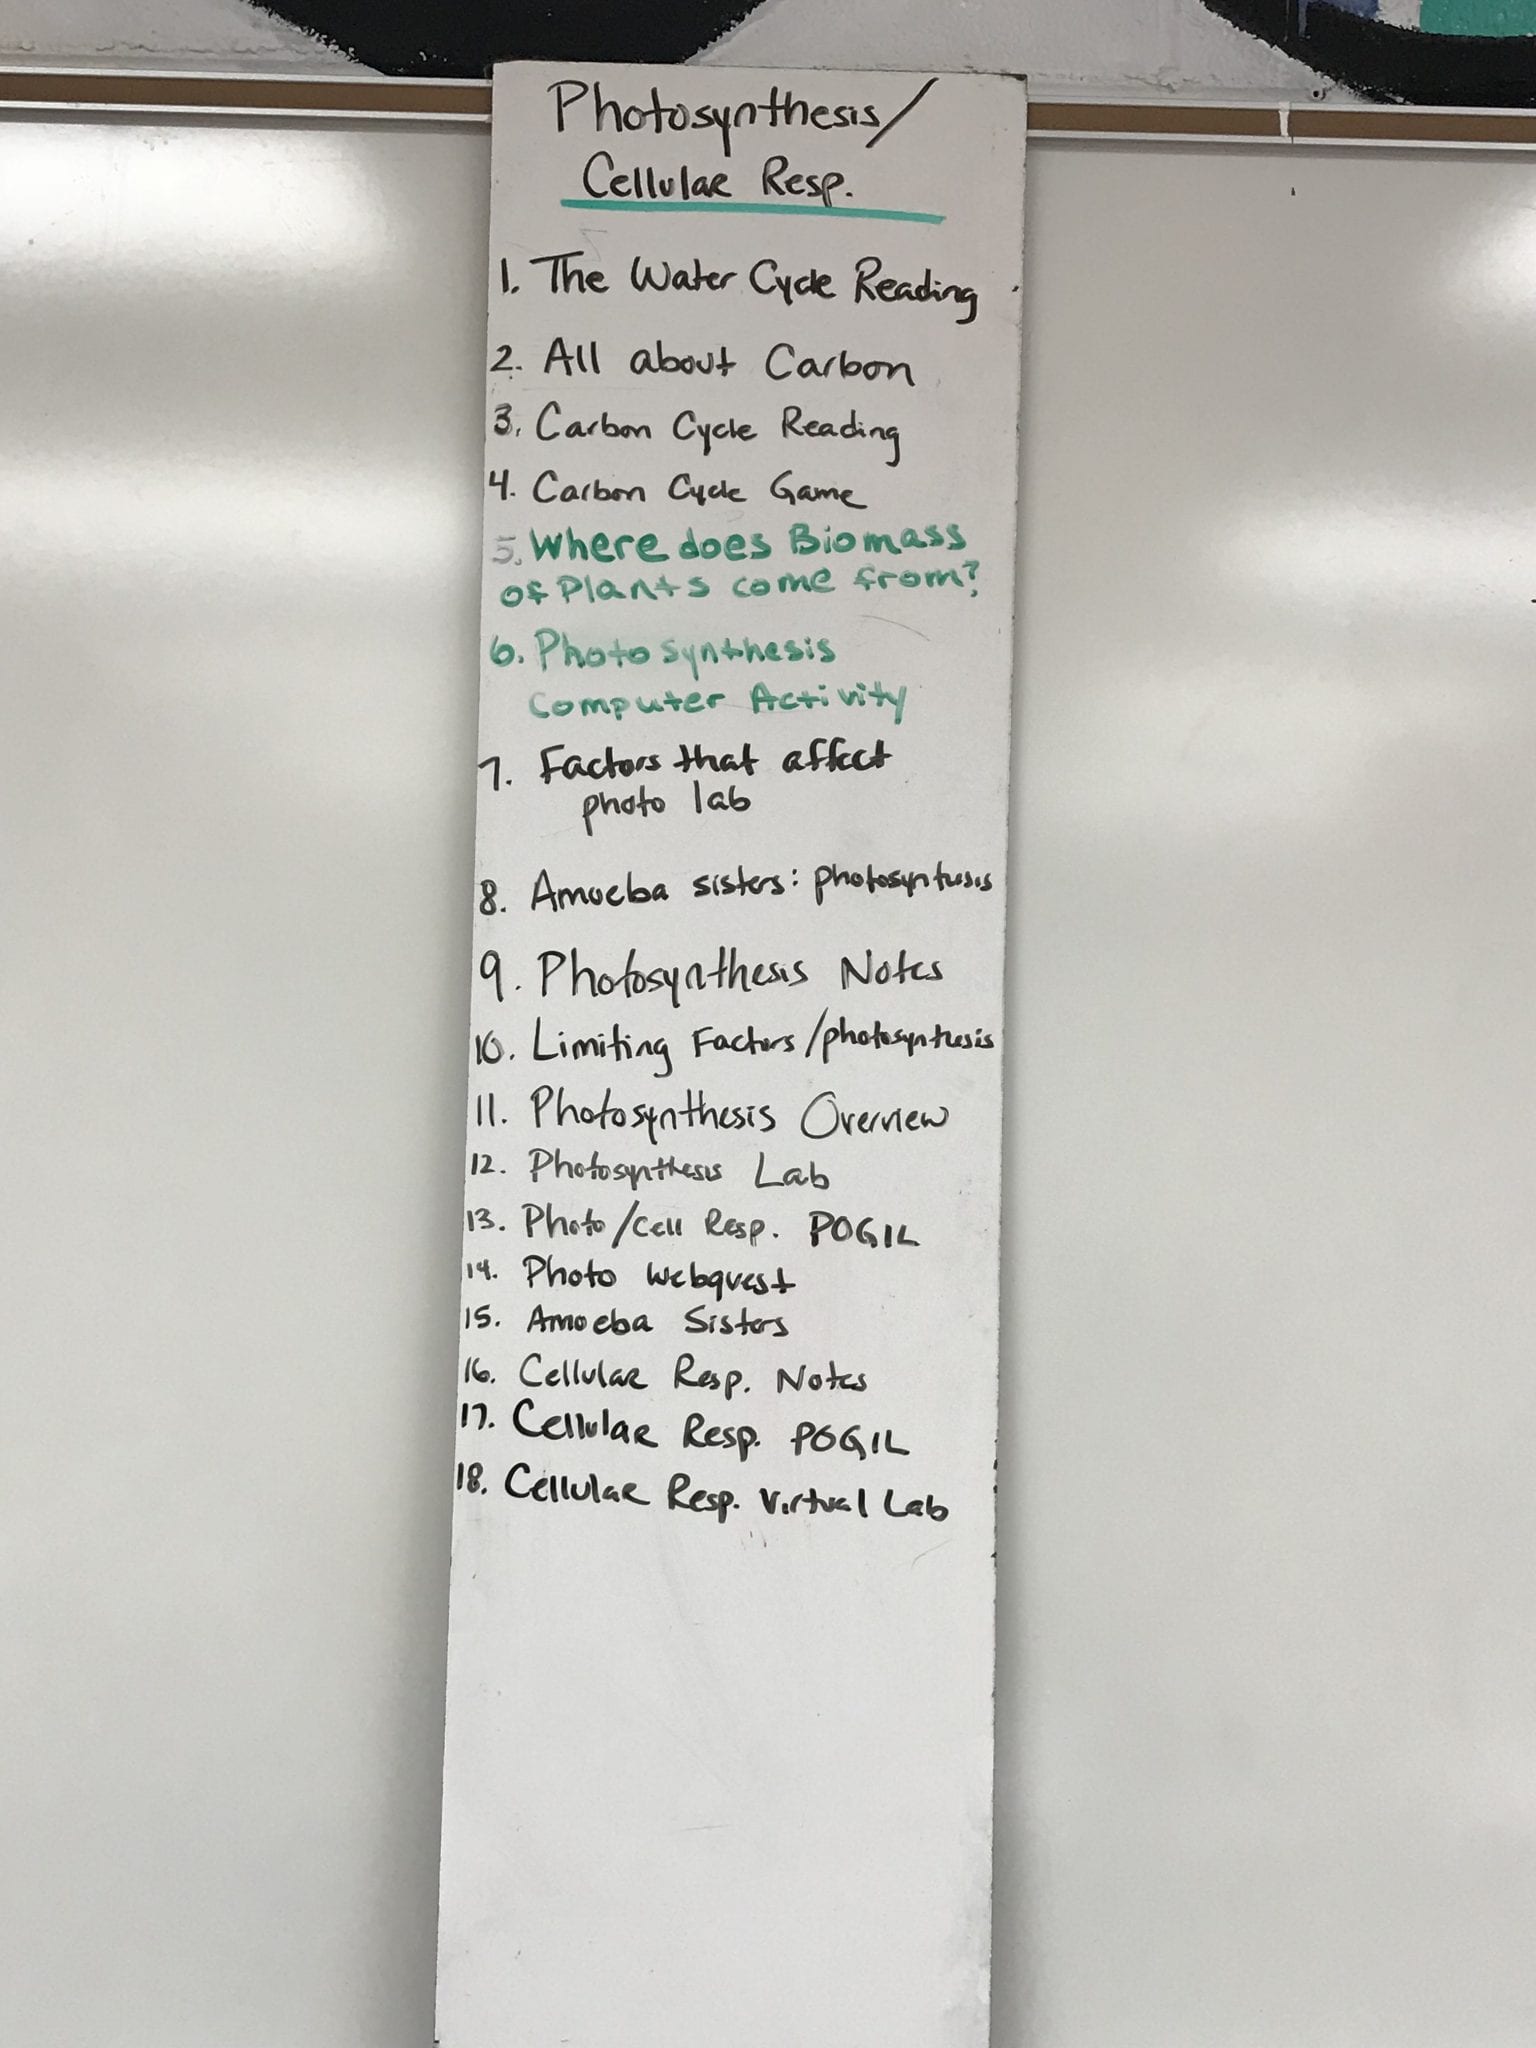 Photosynthesis/
Cellular Resp.
1. The Water Cycle Reading
2. All about Carbon
3. Carbon Cycle Reading
4. Carbon Cycle Game
5. Where does Biomass
of Plants come from?
6. Photosynthesis
Computer Activity
7. Factors that affect
photo lab
8. Amoeba sisters: photosynthesis
9. Photosynthesis Notes
10. Limiting Factors/photosynthesis
11. Photosynthesis Overview
12. Photosynthesis Lab
13. Photo/Cell Resp. POGIL
14. Photo Webquest
15. Amoeba Sisters
16. Cellular Resp. Notes
17. Cellular Resp. POGIL
18. Cellular Resp. Virtual Lab